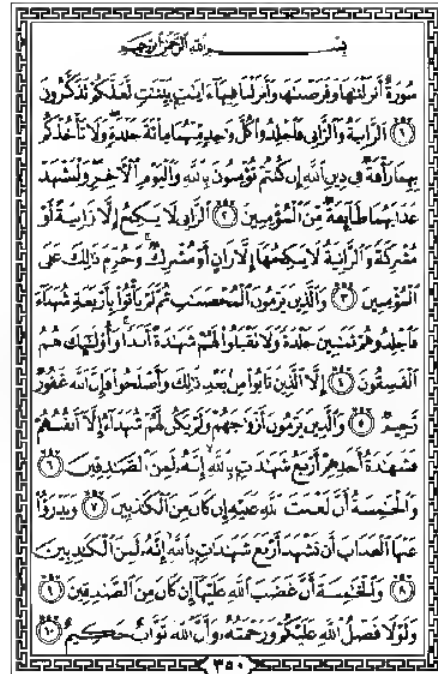 بِسْمِ ٱللَّهِ ٱلرَّحْمَٰنِ ٱلرَّحِيمِ
سُورَةٌ أَنزَلْنَٰهَا وَفَرَضْنَٰهَا وَأَنزَلْنَا فِيهَآ ءَايَٰتٍۭ بَيِّنَٰتٍ لَّعَلَّكُمْ تَذَكَّرُونَ
١ ٱلزَّانِيَةُ وَٱلزَّانِى فَٱجْلِدُوا۟ كُلَّ وَٰحِدٍ مِّنْهُمَا مِا۟ئَةَ جَلْدَةٍ وَلَا تَأْخُذْكُم
بِهِمَا رَأْفَةٌ فِى دِينِ ٱللَّهِ إِن كُنتُمْ تُؤْمِنُونَ بِٱللَّهِ وَٱلْيَوْمِ ٱلْءَاخِرِ وَلْيَشْهَدْ
عَذَابَهُمَا طَآئِفَةٌ مِّنَ ٱلْمُؤْمِنِينَ ٢ ٱلزَّانِى لَا يَنكِحُ إِلَّا زَانِيَةً أَوْ
مُشْرِكَةً وَٱلزَّانِيَةُ لَا يَنكِحُهَآ إِلَّا زَانٍ أَوْ مُشْرِكٌ وَحُرِّمَ ذَٰلِكَ عَلَى
ٱلْمُؤْمِنِينَ ٣ وَٱلَّذِينَ يَرْمُونَ ٱلْمُحْصَنَٰتِ ثُمَّ لَمْ يَأْتُوا۟ بِأَرْبَعَةِ شُهَدَآءَ
فَٱجْلِدُوهُمْ ثَمَٰنِينَ جَلْدَةً وَلَا تَقْبَلُوا۟ لَهُمْ شَهَٰدَةً أَبَدًا وَأُو۟لَٰٓئِكَ هُمُ
ٱلْفَٰسِقُونَ ٤ إِلَّا ٱلَّذِينَ تَابُوا۟ مِنۢ بَعْدِ ذَٰلِكَ وَأَصْلَحُوا۟ فَإِنَّ ٱللَّهَ غَفُورٌ
رَّحِيمٌ ٥ وَٱلَّذِينَ يَرْمُونَ أَزْوَٰجَهُمْ وَلَمْ يَكُن لَّهُمْ شُهَدَآءُ إِلَّآ أَنفُسُهُمْ
فَشَهَٰدَةُ أَحَدِهِمْ أَرْبَعُ شَهَٰدَٰتٍۭ بِٱللَّهِ إِنَّهُۥ لَمِنَ ٱلصَّٰدِقِينَ ٦
وَٱلْخَٰمِسَةُ أَنَّ لَعْنَتَ ٱللَّهِ عَلَيْهِ إِن كَانَ مِنَ ٱلْكَٰذِبِينَ ٧ وَيَدْرَؤُا۟
عَنْهَا ٱلْعَذَابَ أَن تَشْهَدَ أَرْبَعَ شَهَٰدَٰتٍۭ بِٱللَّهِ إِنَّهُۥ لَمِنَ ٱلْكَٰذِبِينَ
٨ وَٱلْخَٰمِسَةَ أَنَّ غَضَبَ ٱللَّهِ عَلَيْهَآ إِن كَانَ مِنَ ٱلصَّٰدِقِينَ ٩
وَلَوْلَا فَضْلُ ٱللَّهِ عَلَيْكُمْ وَرَحْمَتُهُۥ وَأَنَّ ٱللَّهَ تَوَّابٌ حَكِيمٌ ١٠
٣٥٠